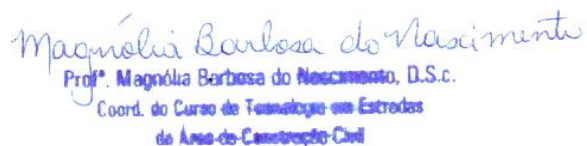 Magnólia Barbosa do Nascimento
Profª. Magnólia Barbosa do Nascimento, D.S.c.
Coord. do Curso de Tecnologia em Estradas
da Área de Construção Civil